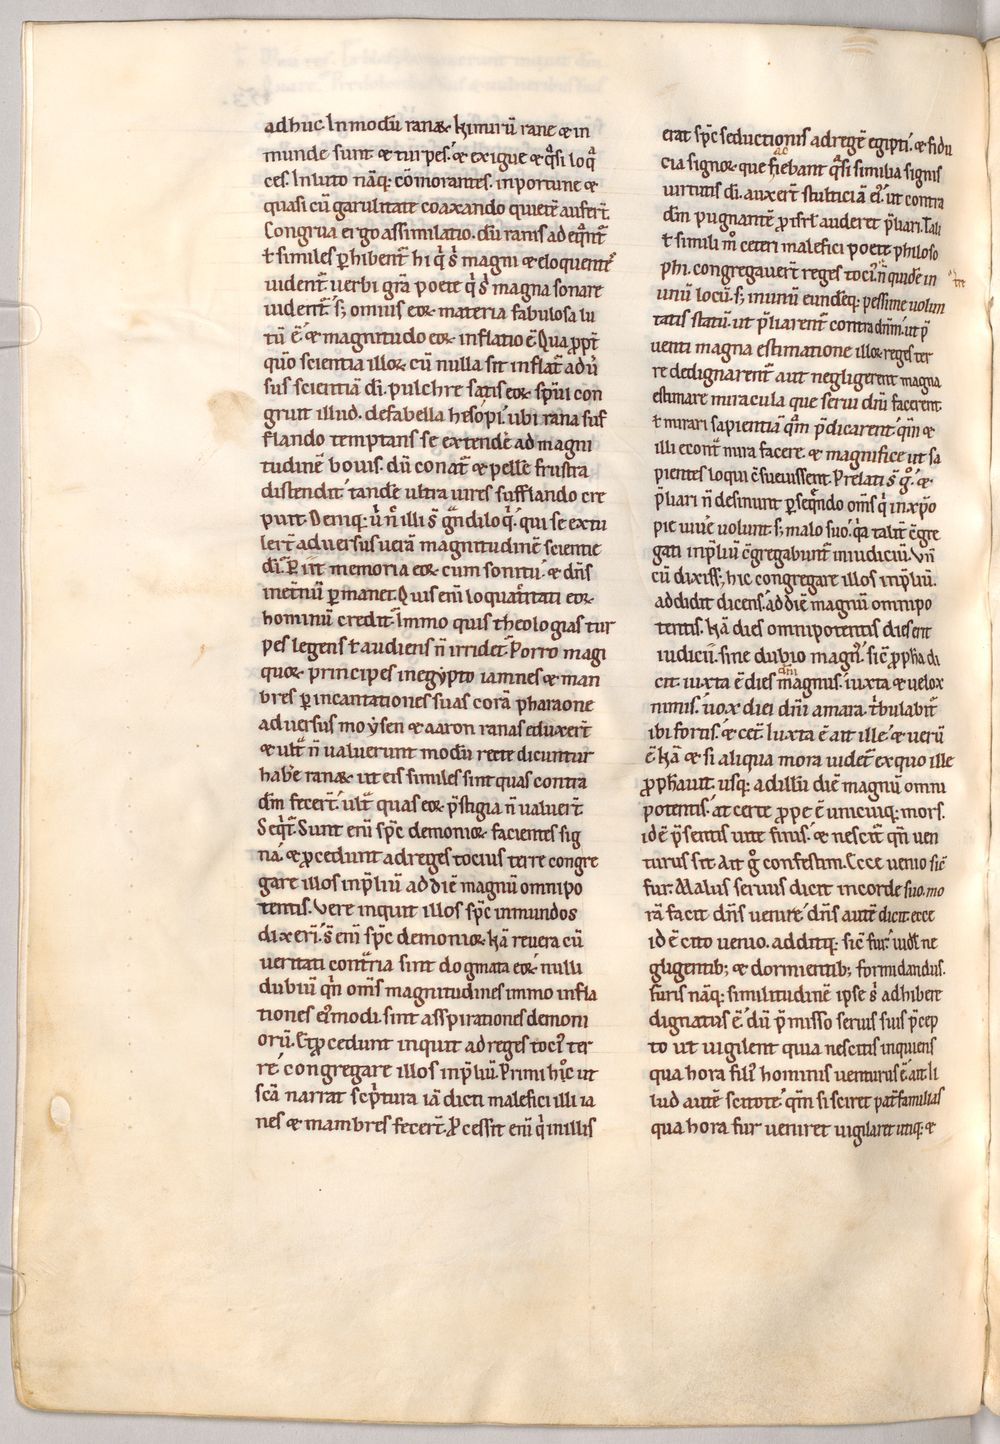 adhuc. In modū ranaꝝ. Nimirū rane & in
munde sunt & turpes. & exigue & q̄si loq̄
ces. In luto nāq; cōmorantes. inportune &
quasi cū garulitate coaxando quietē aufert̄.
Congrua ergo assimilatio. dū ranis adeq̄nt̄
ł similes ꝑhibent̄ hi qͥ sͥ magni & eloquentes
uident̄. uerbi grā poete qͥ sͥ magna sonare
uident̄. s; omnis eoꝝ materia fabulosa lu
tū ē. & magnitudo eoꝝ inflatio ē. Quaꝓpt̄
qm̄o scientia illoꝝ cū nulla sit inflat̄ adū
sus scientiā dī. pulchre satis eoꝝ spūi con
gruit illud. de fabella hesopi. ubi rana suf
flando temptans se extendē ad magni
tudinē bouis. dū conat̄ & pellē frustra
distendit. tandē ultra uires sufflando cre
puit. Deniq; ū n̄ illi s̄ gn̄diloqͥ. qui se extu
lert̄ aduersus uerā magnitudinē scientie
dī. ꝑiit memoria eoꝝ cum sonitu. & dn̄s
inet̄nū ꝑmanet. Quis enī loquacitati eoꝝ
hominū credit. Immo quis theologias tur
pes legens ł audiens n̄ irridet. Porro magi
quoꝝ principes in egypto iamnes & mam
bres ꝑ incantationes suas corā pharaone
aduersus moysen & aaron ranas eduxert̄
& ult̄ n̄ ualuerunt modū recte dicuntur
habē ranaꝝ ut eis similes sint quas contra
dm̄ fecert̄. ult̄ quas eoꝝ p̄stigia n̄ ualuert̄.
Seqt̄. Sunt enī spc̄ demonioꝝ facientes sig
na. & ꝓcedunt ad reges tocius terre congre
gare illos inp̄liū ad diē magnū omnipo
tentis. Vere inquit illos spc̄ inmundos
dixeri. s̄ enī spc̄ demonioꝝ. Nā reuera cū
ueritati cont̄ria sint dogmata eoꝝ. nulli
dubiū qn̄ om̄s magnitudines immo infla
tiones eīmodi. sint asspirationes demoni
orū. Et ꝓcedunt inquit ad reges tocī ter
re congregare illos inp̄liū. Primi hͦc ut
scā narrat scp̄tura iā dicti malefici illi ia
nes & mambres fecert̄. Ꝓcessit enī qͥ in illis
erat spc̄ seductionis ad regē egipti. & fidu
cia signoꝝ que fiebant q̄si similia signis
ac
uirtutis dī. auxert̄ stulticiā eī. ut contra
dm̄ pugnantē ꝓ isrł auderet p̄liari. Tali
ł simili mͦ ceteri malefici poete philoso
phi. congregauert̄ reges tocī. n̄ quidē in
unū locū. s; inunū eundēq; pessime uolun
tatis statū. ut p̄liarent̄ contra dn̄m. ut p̄
uenti magna estimatione illoꝝ reges ter
re dedignarent̄ aut negligerent magna
estimare miracula que serui dn̄i facerent.
ł mirari sapientiā qm̄ p̄dicarent. qm̄ &
illi econt̄ mira facere. & magnifice ut sa
pientes loqui c̄sueuissent. Prelati s̄ gͦ. &
p̄liari n̄ desinunt ꝑseqn̄do om̄s qͥ in xp̄o
pie uiuē uolunt. s; malo suo. qͥa talit̄ c̄gre
gati inp̄liū c̄gregabunt̄ iniudiciū. Vn̄
cū dixiss; hic congregare illos inp̄liū.
addidit dicens. ad diē magnū omnipo
tentis. Nā dies omnipotentis dies erit
iudicii. sine dubio magn̄. sic̄ ꝓpha di
cit. iuxta ē dies magnus. iuxta & uelox
nimis. uox diei dn̄i amara. tͥbulabit̄
ibi fortis. & cet̄. Iuxta ē ait ille. & uerū
ē. Nā & si aliqua mora uidet̄ ex quo ille
ꝓphauit. usq; ad illū diē magnū omni
potentis. at certe ꝓpe ē unicuiq; mors.
id ē p̄sentis uite finis. & nescit̄ qn̄ uen
turus sit. Ait gͦ confestim. Ecce uenio sic̄
fur. Malus seruus dicit in corde suo. mo
rā facit dn̄s uenire. dn̄s autē dicit ecce
id ē cito uenio. additq; sic̄ fur. uidē ne
gligentib; & dormientib; formidandus.
furis nāq; similitudinē ipse sͥ adhibere
dignatus ē. dū p̄misso seruis suis p̄cep
to ut uigilent quia nescitis inquiens
qua hora filiͥ hominis uenturus ē. ait. il
lud autē scitote. qm̄ si sciret pat̄familias
qua hora fur ueniret uigilaret utiq; &